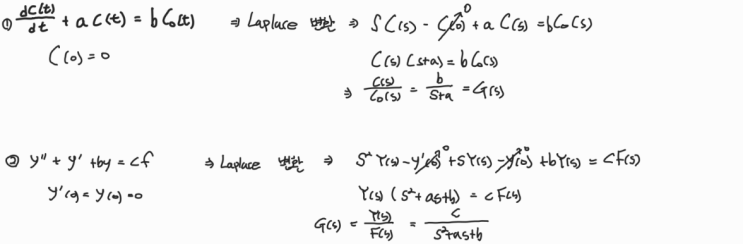 ① dC(t)/dt + a C(t) = b C₀(t) ⇒ Laplace 변환 ⇒ S C(s) - C(0)↗0 + a C(s) = b C₀(s)
C(0) = 0
C(s) (s+a) = b C₀(s)
⇒ C(s)/C₀(s) = b/(s+a) = G(s)
② y'' + y' + by = cf ⇒ Laplace 변환 ⇒ S² Y(s) - y'(0)↗0 + S Y(s) - y(0)↗0 + b Y(s) = c F(s)
y'(0) = y(0) = 0
Y(s) (s² + as + b) = c F(s)
G(s) = Y(s)/F(s) = c/(s² + as + b)